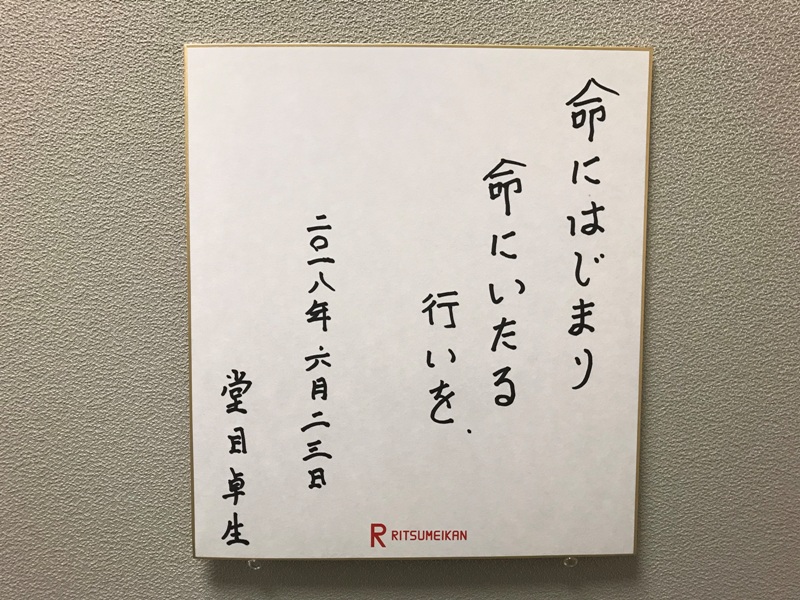 命にはじまり
命にいたる
行いを.
二〇一八年 六月二三日
堂目卓生
R RITSUMEIKAN